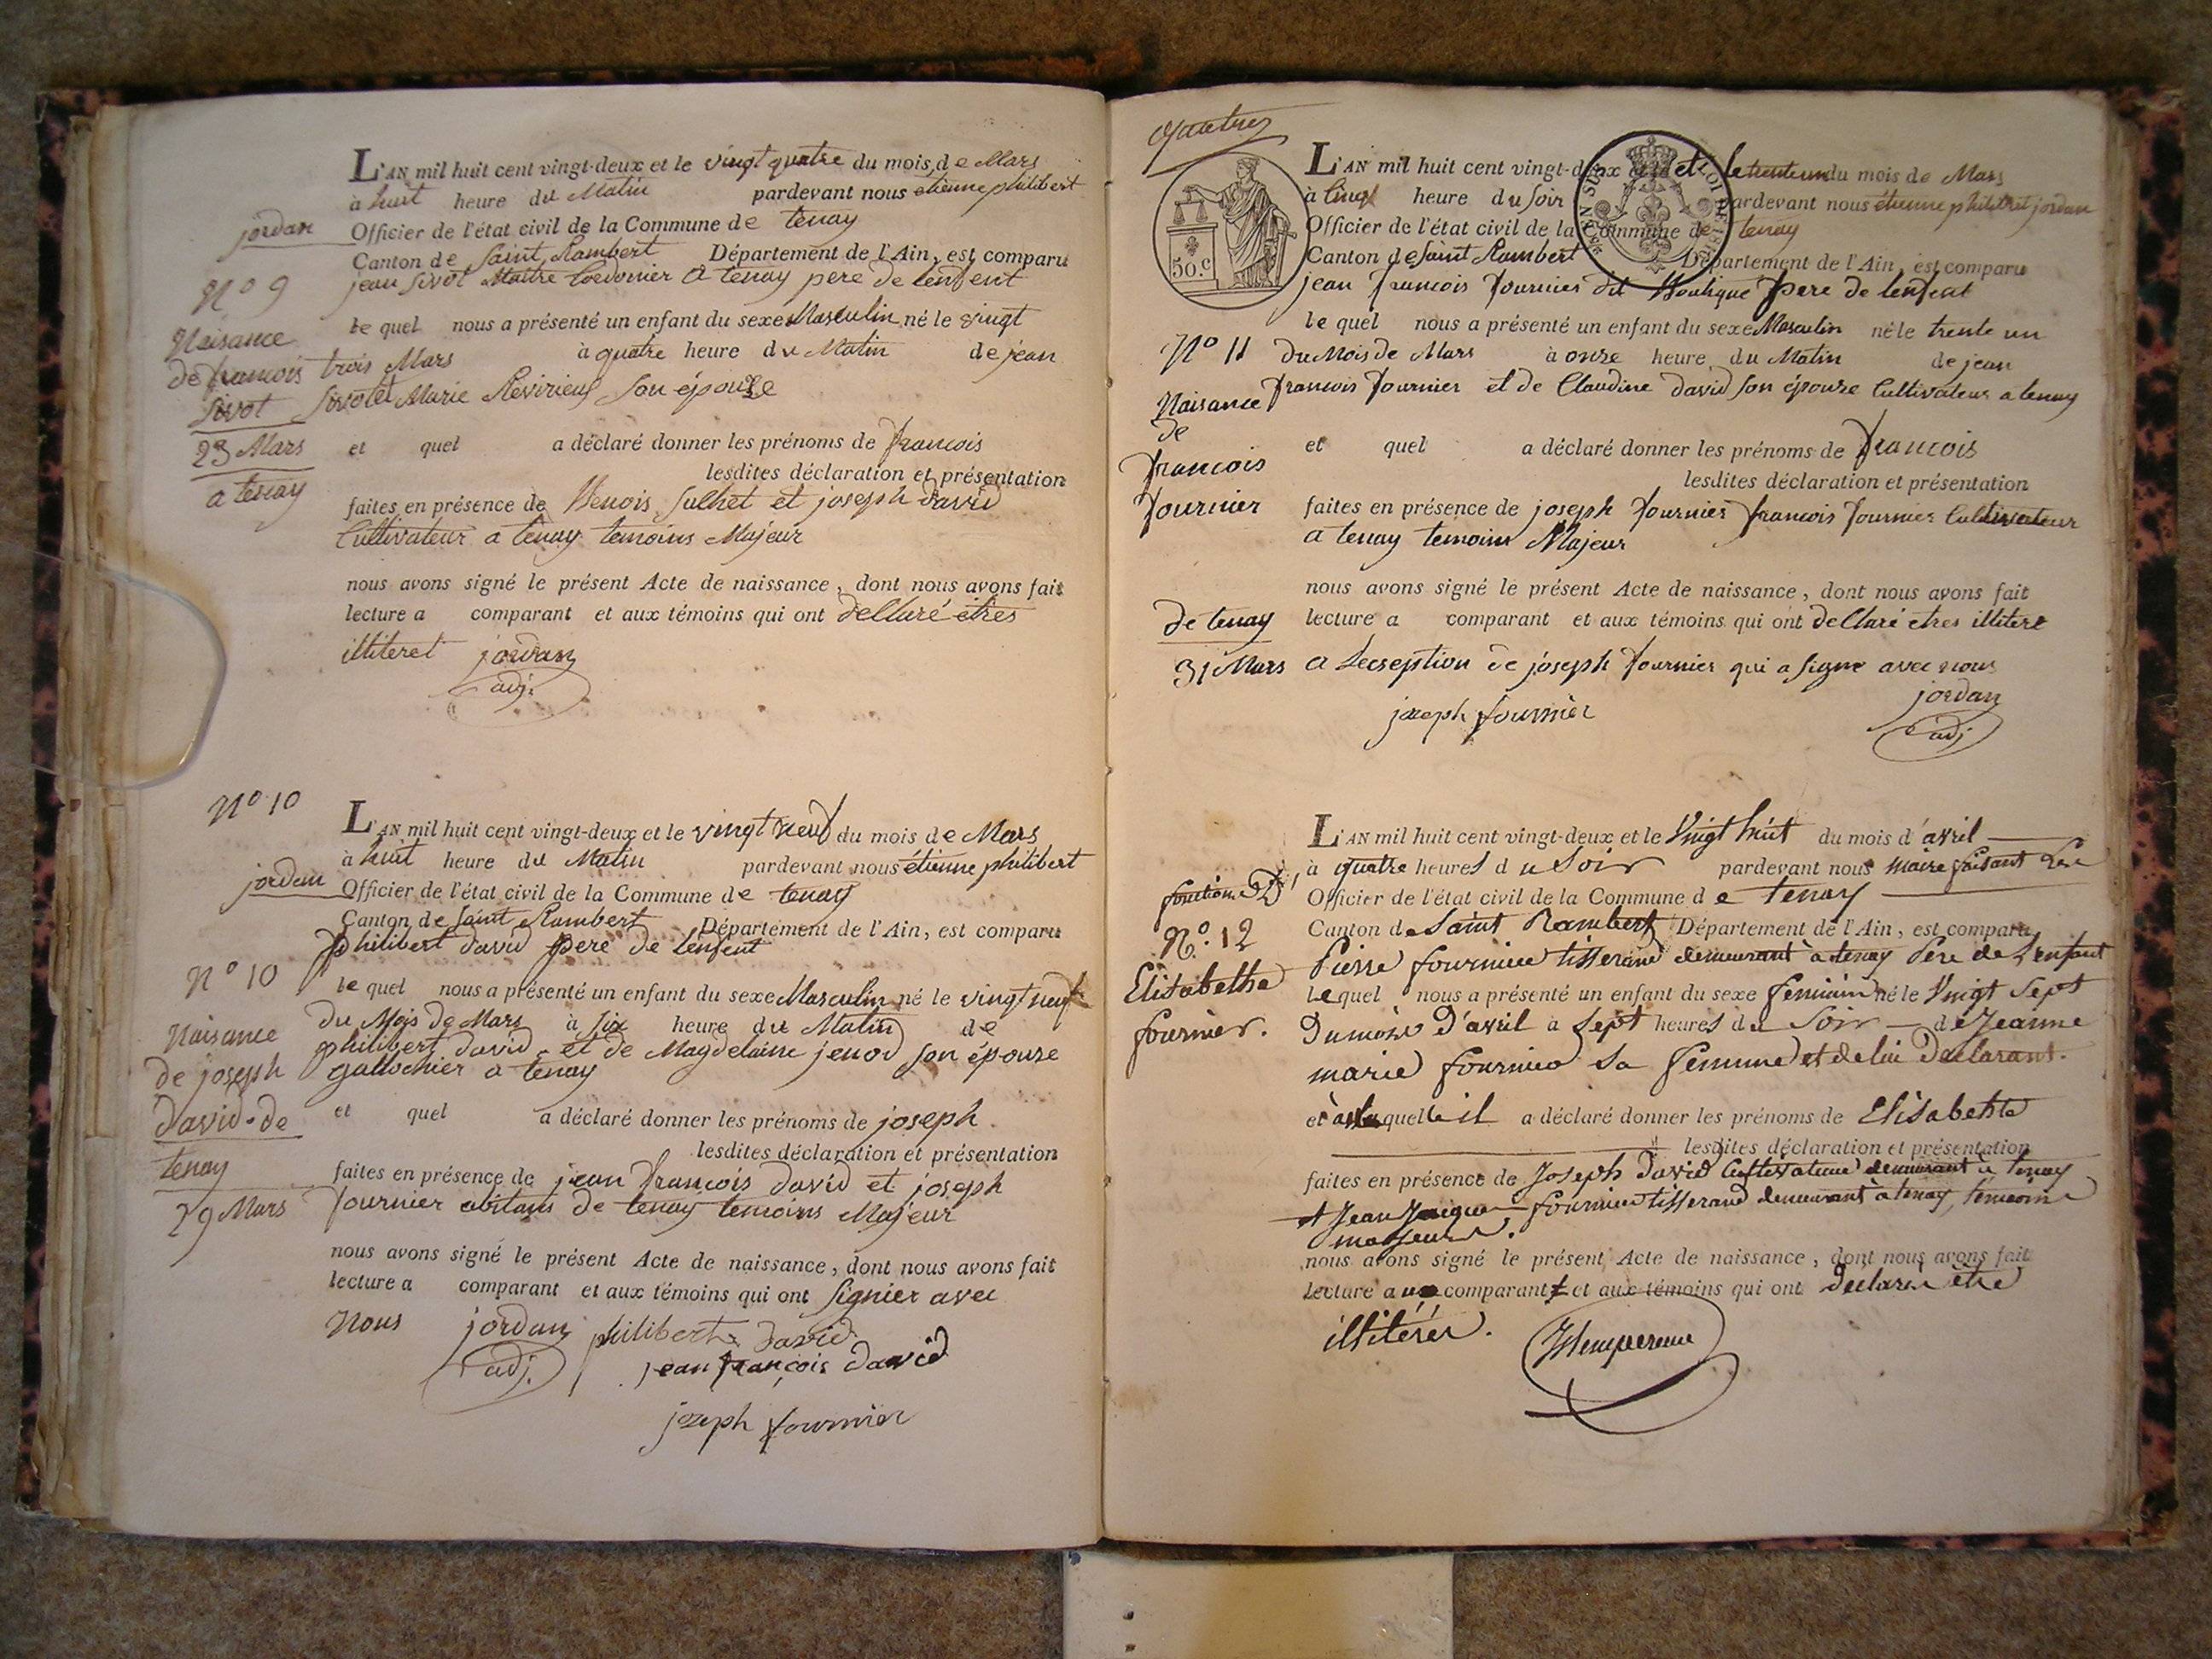 L'AN mil huit cent vingt-deux et le vingt quatre du mois de Mars
à huit heure du Matin pardevant nous etienne philibert
jordan Officier de l'état civil de la Commune de tenay
Canton de Saint Rambert Département de l'Ain, est comparu
N° 9 jean Sivot Maitre a tenay pere de lenfent
le quel nous a présenté un enfant du sexe Masculin né le vingt
Naisance
de francois trois Mars à quatre heure du Matin de jean
Sivot Sivot et Marie son épouze
23 Mars et quel a déclaré donner les prénoms de francois
a tenay lesdites déclaration et présentation
faites en présence de et joseph david
Cultivateur a tenay temoins Majeur
nous avons signé le présent Acte de naissance, dont nous avons fait
lecture a comparant et aux témoins qui ont declaré etres
illiteret jordan
adj.
N° 10
L'AN mil huit cent vingt-deux et le vingt neuf du mois de Mars
à huit heure du Matin pardevant nous étienne philibert
jordan Officier de l'état civil de la Commune de tenay
Canton de Saint Rambert Département de l'Ain, est comparu
philibert david pere de lenfent
N° 10 le quel nous a présenté un enfant du sexe Masculin né le vingt neuf
du Mois de Mars à six heure du Matin de
Naisance philibert david et de Magdelaine jenod son épouze
de joseph a tenay
david de et quel a déclaré donner les prénoms de joseph
tenay lesdites déclaration et présentation
faites en présence de jean francois david et joseph
29 Mars fournier abitans de tenay temoins Majeur
nous avons signé le présent Acte de naissance, dont nous avons fait
lecture a comparant et aux témoins qui ont signier avec
Nous jordan philibert david
adj. jean françois david
joseph fournier
L'AN mil huit cent vingt-deux et le trente un du mois de Mars
50.c
à cinq heure du soir pardevant nous étienne philibert jordan
Officier de l'état civil de la Commune de tenay
Canton de Saint Rambert Département de l'Ain, est comparu
jean francois fournier dit pere de lenfent
le quel nous a présenté un enfant du sexe Masculin né le trente un
N° 11 du Mois de Mars à onze heure du Matin de jean
Naisance francois fournier et de Claudine david son épouze Cultivateur a tenay
de
francois et quel a déclaré donner les prénoms de francois
lesdites déclaration et présentation
fournier faites en présence de joseph fournier francois fournier Cultivateur
a tenay temoins Majeur
nous avons signé le présent Acte de naissance, dont nous avons fait
de tenay lecture a comparant et aux témoins qui ont declaré etres illiteré
31 Mars a de joseph fournier qui a signe avec nous
joseph fournier jordan
adj
L'AN mil huit cent vingt-deux et le Vingt huit du mois d'avril
à quatre heures du Soir pardevant nous maire faisant Les
Officier de l'état civil de la Commune de tenay
N° 12 Canton de Saint Rambert Département de l'Ain, est comparu
Pierre fournier tisserand demeurant à tenay Père de L'enfant
Elisabethe Lequel nous a présenté un enfant du sexe feminin né le Vingt Sept
fournier. Du mois D'avril à Sept heures du Soir de Jeanne
marie fournier sa femme et de lui Déclarant.
et à laquelle il a déclaré donner les prénoms de Elisabethe
lesdites déclaration et présentation
faites en présence de Joseph David Cultivateur demeurant à tenay
et Jean fournier tisserand demeurant à tenay, témoins
majeurs.
nous avons signé le présent Acte de naissance, dont nous avons fait
lecture aux comparant et aux témoins qui ont Déclarés être
illitérés.